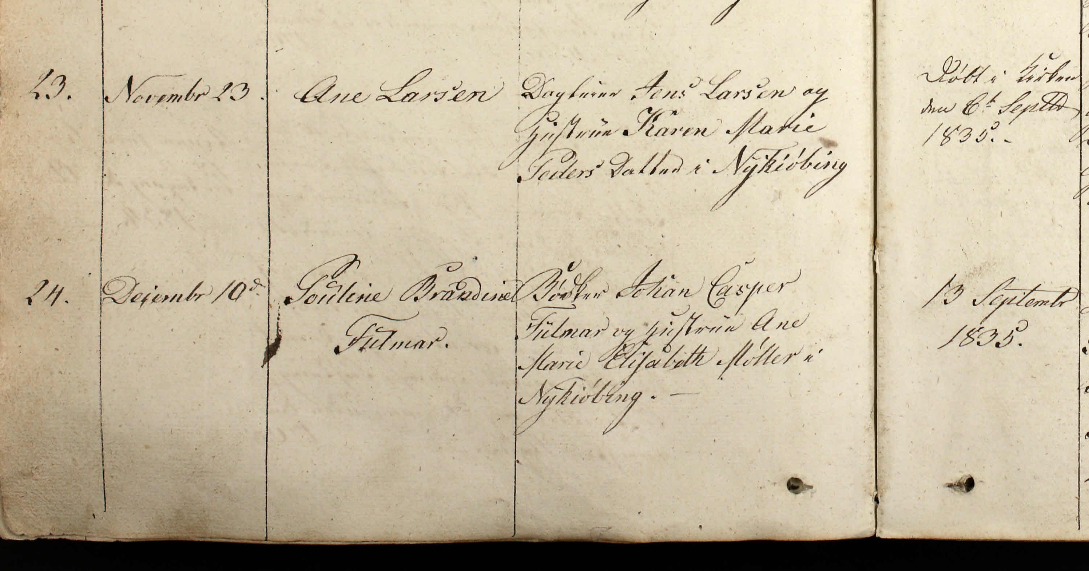 23.
Novembr 23.
Ane Larsen
Daglejer Jens Larsen og
Hustrue Karen Marie
Peders Datter i Nykiøbing
Døbt i Kirken
den 6t Septbr
1835.-
24.
Decembr 10d.
Pouline Brandine
Fulmar.
Bødker Johan Casper
Fulmar og Hustrue Ane
Marie Elisabeth Møller i
Nykiøbing. -
13 Septembr
1835.